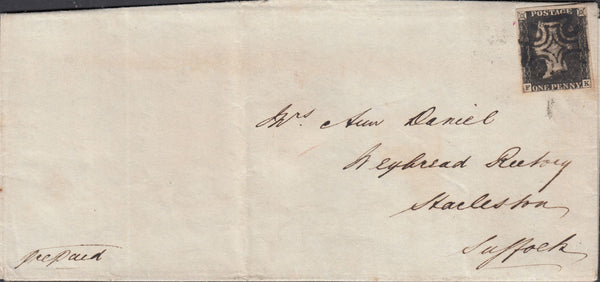 POSTAGE
P ONE PENNY K
Mrs Ann Daniel
Weybread Rectory
Harleston
Suffolk
prepaid